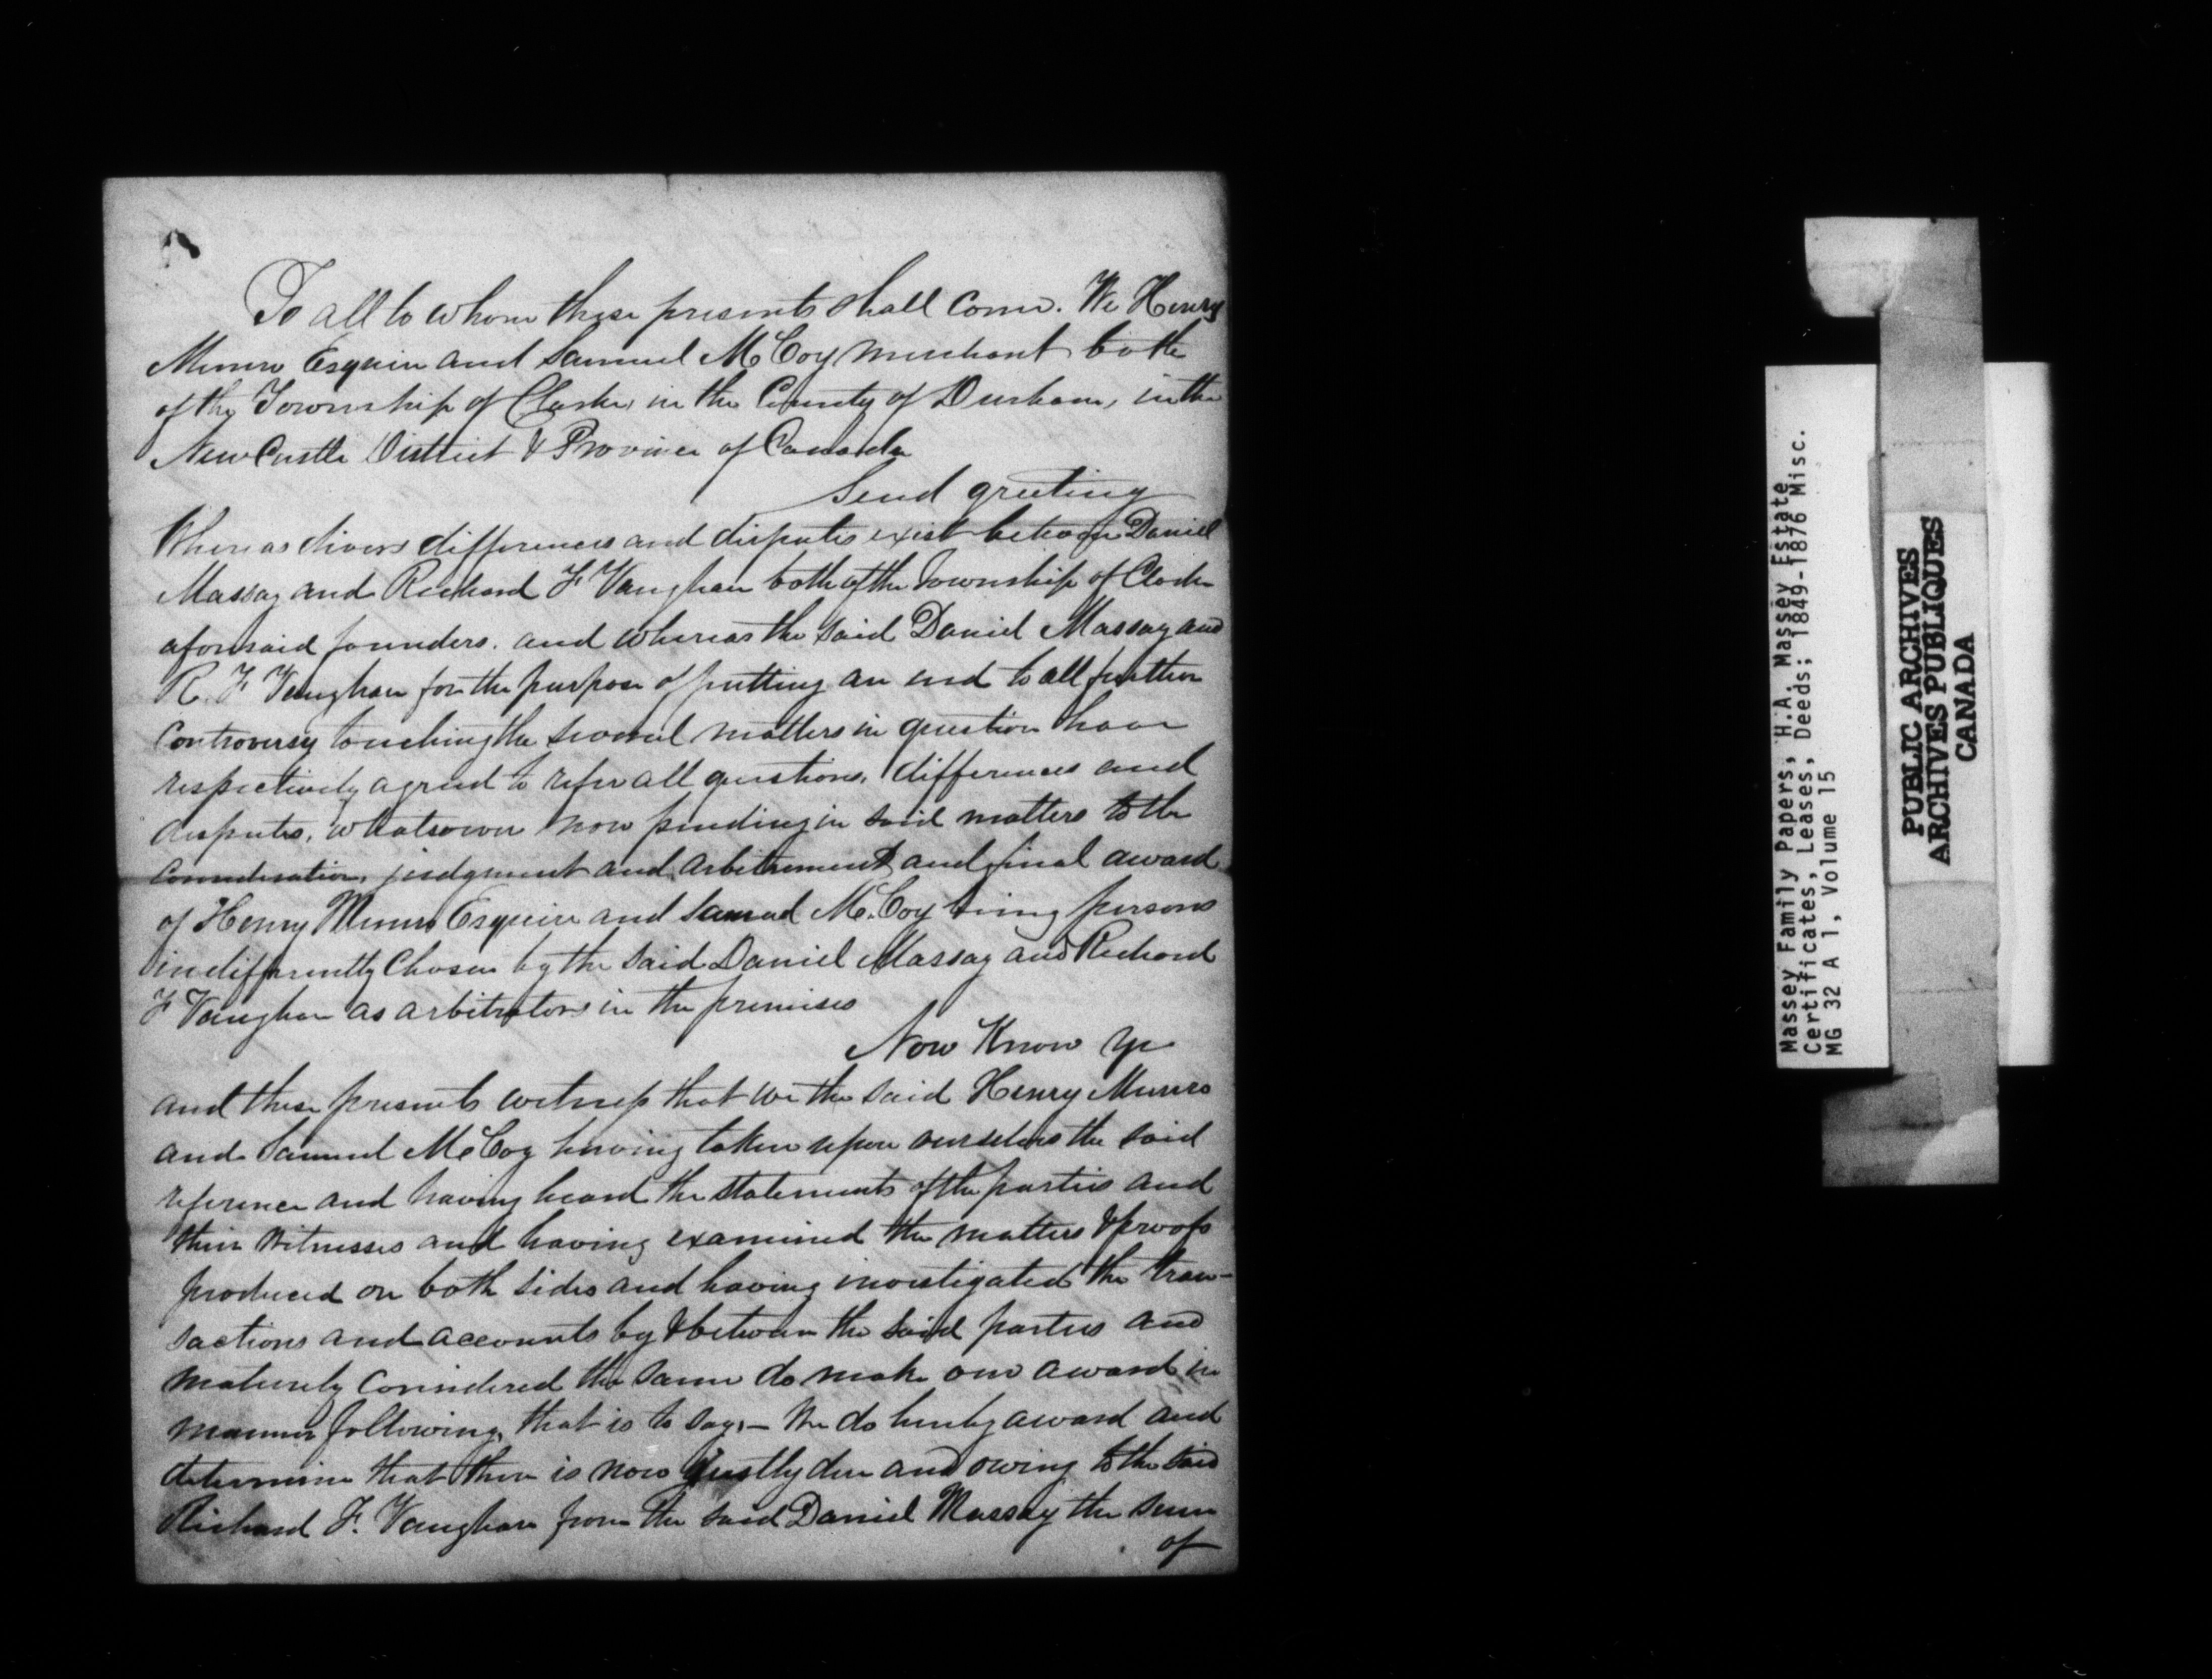 To all to whom these presents shall come. We Henry
Munro Esquire and Samuel McCoy merchant both
of the Township of Clarke, in the County of Durham, in the
NewCastle District & Province of Canada
Send greeting
Whereas divers differences and disputes exist between Daniel
Massay and Richard F Vaughan both of the Township of Clarke
aforesaid founders. and whereas the said Daniel Massay and
R. F Vaughan for the purpose of putting an end to all further
Controversy touching the several matters in question have
respectively agreed to refer all questions, differences and
disputes, whatsoever now pending in said matters to the
Consideration, judgment and arbitrament and final award
of Henry Munro Esquire and Samuel McCoy being persons
indifferently Chosen by the said Daniel Massay and Richard
F Vaughan as arbitrators in the premises
Now Know ye
and these presents witness that we the said Henry Munro
and Samuel McCoy having taken upon ourselves the said
reference and having heard the statements of the parties and
their witnesses and having examined the matters & proofs
produced on both sides and having investigated the tran-
sactions and accounts by & between the said parties and
maturely Considered the same do make our award in
manner following, that is to say,— We do hereby award and
determine that there is now justly due and owing to the said
Richard F. Vaughan from the said Daniel Massay the sum
of
Massey Family Papers, H.A. Massey Estate
Certificates, Leases, Deeds; 1849-1876 Misc.
MG 32 A 1, Volume 15
PUBLIC ARCHIVES
ARCHIVES PUBLIQUES
CANADA